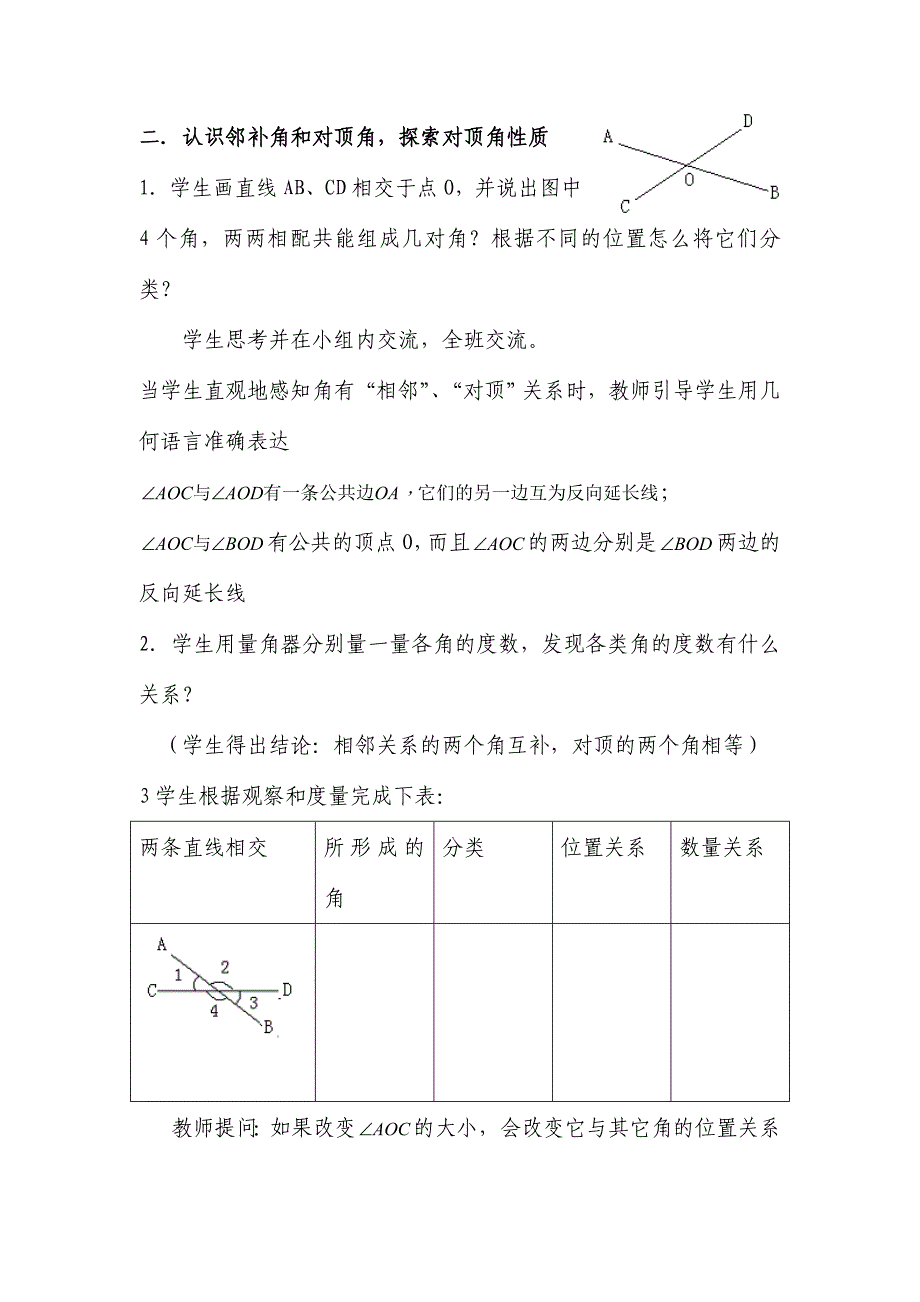 二．认识邻补角和对顶角，探索对顶角性质
A
D
O
C
B
1．学生画直线 AB、CD 相交于点 O，并说出图中
4 个角，两两相配共能组成几对角？根据不同的位置怎么将它们分
类？
学生思考并在小组内交流，全班交流。
当学生直观地感知角有“相邻”、“对顶”关系时，教师引导学生用几
何语言准确表达
∠AOC与∠AOD有一条公共边OA，它们的另一边互为反向延长线；
∠AOC与∠BOD 有公共的顶点 O,而且∠AOC 的两边分别是∠BOD 两边的
反向延长线
2．学生用量角器分别量一量各角的度数，发现各类角的度数有什么
关系？
（学生得出结论：相邻关系的两个角互补，对顶的两个角相等）
3 学生根据观察和度量完成下表：
两条直线相交 所形成的 分类 位置关系 数量关系
角
A
1 2
C D
4 3
B
教师提问：如果改变∠AOC 的大小，会改变它与其它角的位置关系